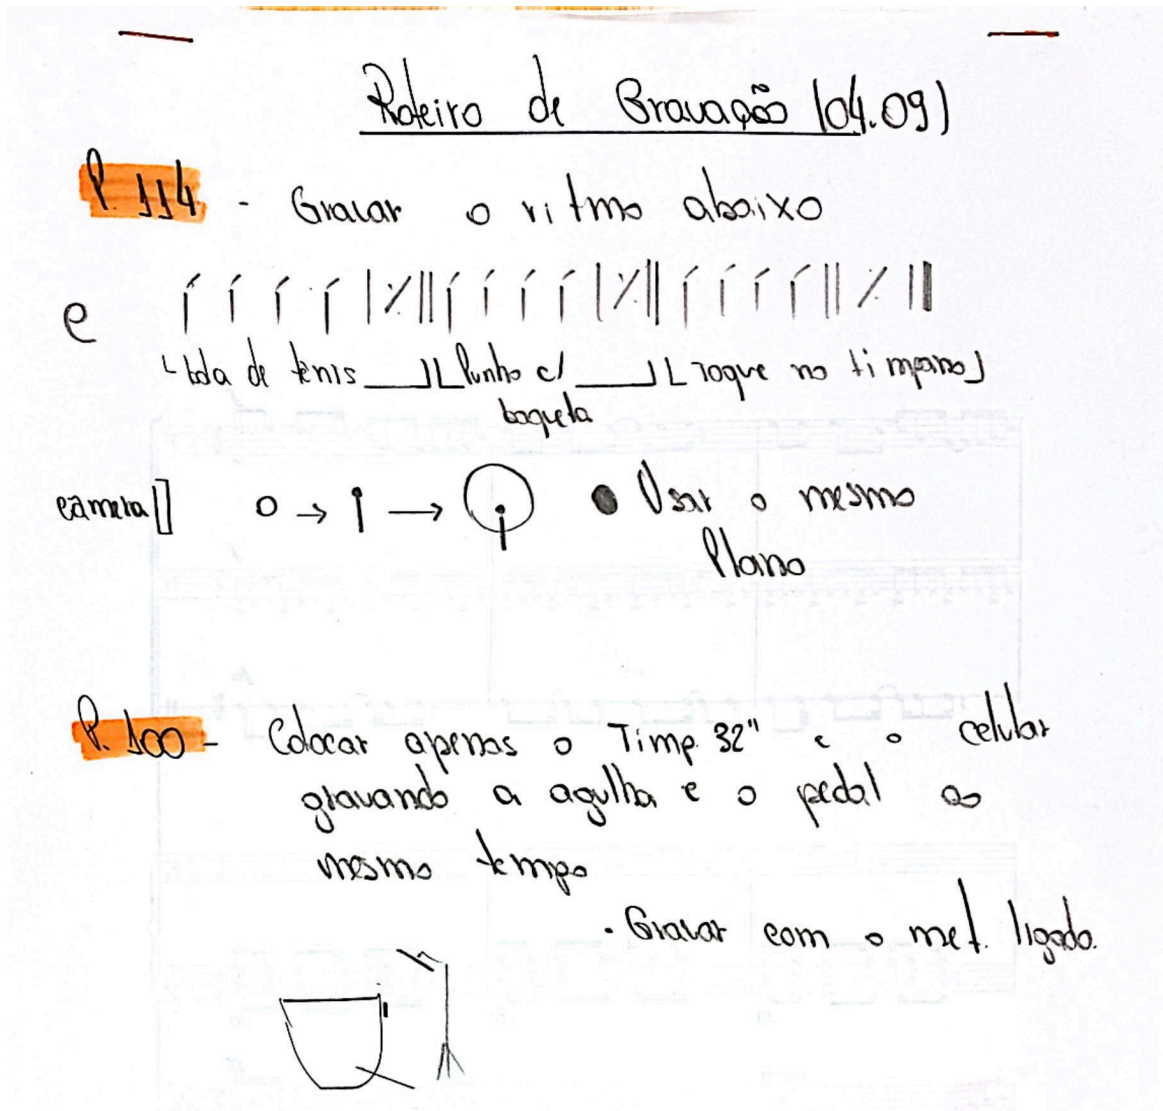 Roteiro de Gravação (04.09)
P. 114 - Gravar o ritmo abaixo
e
bola de tênis Punho c/ Toque no tímpano
baqueta
câmera
Usar o mesmo
Plano
P. 100 - Colocar apenas o Timp. 32" e o celular
gravando a agulha e o pedal ao
mesmo tempo
- Gravar com o met. ligado.